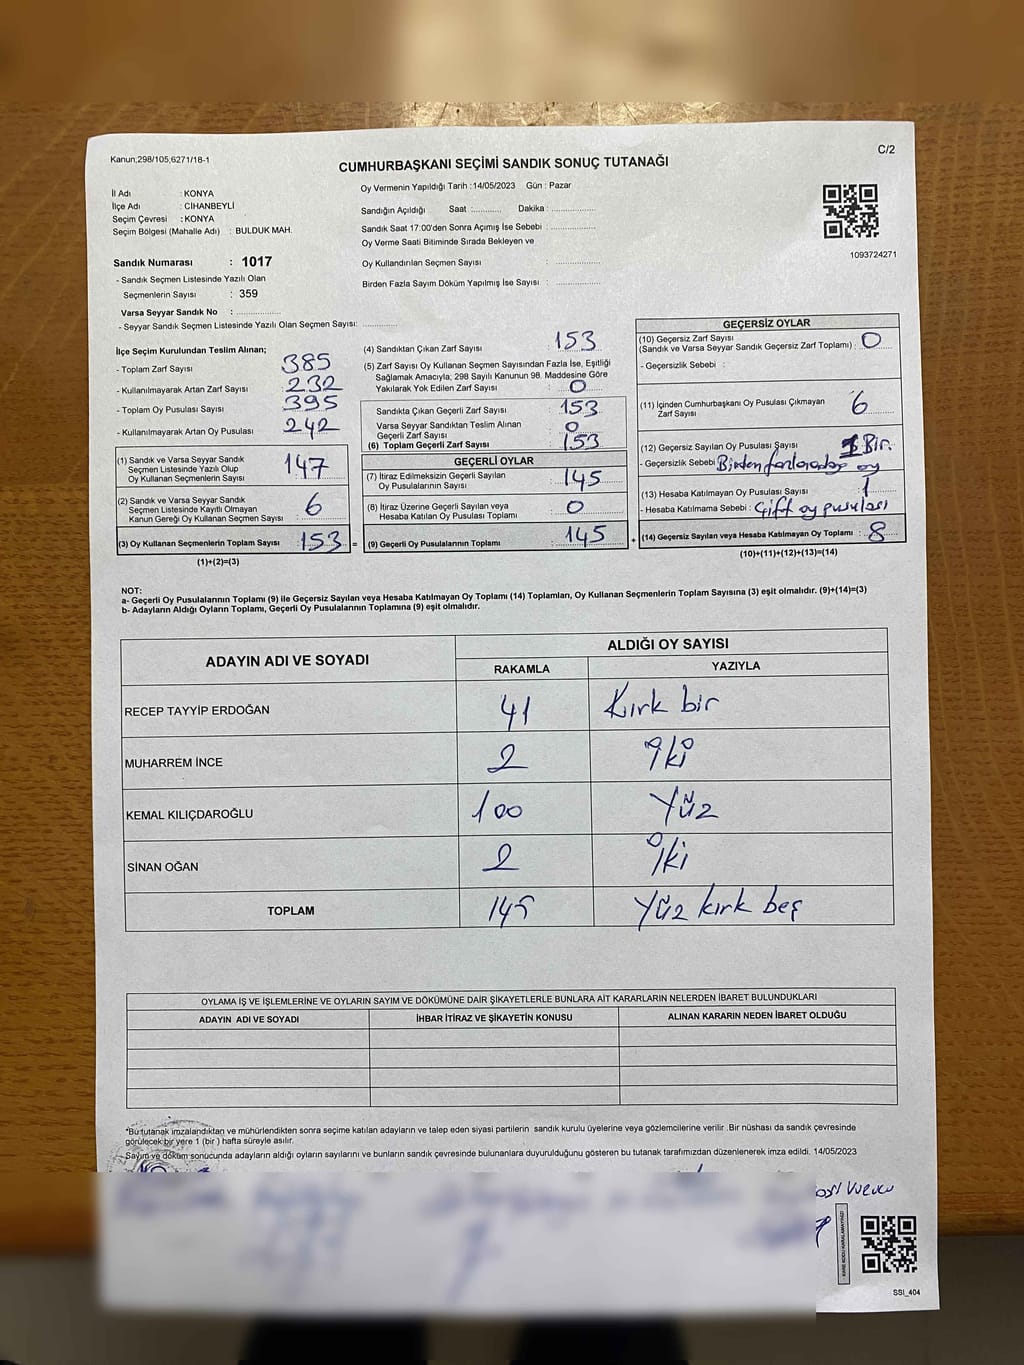 Kanun,298/105,6271/18-1
C/2
CUMHURBAŞKANI SEÇİMİ SANDIK SONUÇ TUTANAĞI
İl Adı : KONYA
İlçe Adı : CİHANBEYLİ
Seçim Çevresi : KONYA
Seçim Bölgesi (Mahalle Adı) : BULDUK MAH.
Sandık Numarası : 1017
- Sandık Seçmen Listesinde Yazılı Olan
Seçmenlerin Sayısı : 359
Varsa Seyyar Sandık No : ..............
- Seyyar Sandık Seçmen Listesinde Yazılı Olan Seçmen Sayısı: ............
Oy Vermenin Yapıldığı Tarih : 14/05/2023 Gün : Pazar
Sandığın Açıldığı Saat :.......... Dakika : ..............
Sandık Saat 17:00'den Sonra Açımış İse Sebebi : ..............
Oy Verme Saati Bitiminde Sırada Bekleyen ve
Oy Kullandırılan Seçmen Sayısı : ..............
Birden Fazla Sayım Döküm Yapılmış İse Sayısı : ..............
1093724271
İlçe Seçim Kurulundan Teslim Alınan;
- Toplam Zarf Sayısı : 385
- Kullanılmayarak Artan Zarf Sayısı : 232
- Toplam Oy Pusulası Sayısı : 395
- Kullanılmayarak Artan Oy Pusulası : 242
(1) Sandık ve Varsa Seyyar Sandık
Seçmen Listesinde Yazılı Olup
Oy Kullanan Seçmenlerin Sayısı : 147
(2) Sandık ve Varsa Seyyar Sandık
Seçmen Listesinde Kayıtlı Olmayan
Kanun Gereği Oy Kullanan Seçmen Sayısı : 6
(3) Oy Kullanan Seçmenlerin Toplam Sayısı : 153 =
(1)+(2)=(3)
(4) Sandıktan Çıkan Zarf Sayısı : 153
(5) Zarf Sayısı Oy Kullanan Seçmen Sayısından Fazla İse, Eşitliği
Sağlamak Amacıyla, 298 Sayılı Kanunun 98. Maddesine Göre
Yakılarak Yok Edilen Zarf Sayısı : 0
Sandıkta Çıkan Geçerli Zarf Sayısı : 153
Varsa Seyyar Sandıktan Teslim Alınan
Geçerli Zarf Sayısı : 0
(6) Toplam Geçerli Zarf Sayısı : 153
GEÇERLİ OYLAR
(7) İtiraz Edilmeksizin Geçerli Sayılan
Oy Pusulalarının Sayısı : 145
(8) İtiraz Üzerine Geçerli Sayılan veya
Hesaba Katılan Oy Pusulası Toplamı : 0
(9) Geçerli Oy Pusulalarının Toplamı : 145 +
GEÇERSİZ OYLAR
(10) Geçersiz Zarf Sayısı
(Sandık ve Varsa Seyyar Sandık Geçersiz Zarf Toplamı) : 0
- Geçersizlik Sebebi :
(11) İçinden Cumhurbaşkanı Oy Pusulası Çıkmayan
Zarf Sayısı : 6
(12) Geçersiz Sayılan Oy Pusulası Sayısı : 1 Bir.
- Geçersizlik Sebebi : Birden fazla aday oy
(13) Hesaba Katılmayan Oy Pusulası Sayısı : 1
- Hesaba Katılmama Sebebi : Çift oy pusulası
(14) Geçersiz Sayılan veya Hesaba Katılmayan Oy Toplamı : 8
(10)+(11)+(12)+(13)=(14)
NOT:
a- Geçerli Oy Pusulalarının Toplamı (9) ile Geçersiz Sayılan veya Hesaba Katılmayan Oy Toplamı (14) Toplamları, Oy Kullanan Seçmenlerin Toplam Sayısına (3) eşit olmalıdır. (9)+(14)=(3)
b- Adayların Aldığı Oyların Toplamı, Geçerli Oy Pusulalarının Toplamına (9) eşit olmalıdır.
ADAYIN ADI VE SOYADI
ALDIĞI OY SAYISI
RAKAMLA YAZIYLA
RECEP TAYYİP ERDOĞAN 41 Kırk bir
MUHARREM İNCE 2 iki
KEMAL KILIÇDAROĞLU 100 Yüz
SİNAN OĞAN 2 iki
TOPLAM 145 Yüz kırk beş
OYLAMA İŞ VE İŞLEMLERİNE VE OYLARIN SAYIM VE DÖKÜMÜNE DAİR ŞİKAYETLERLE BUNLARA AİT KARARLARIN NELERDEN İBARET BULUNDUKLARI
ADAYIN ADI VE SOYADI İHBAR İTİRAZ VE ŞİKAYETİN KONUSU ALINAN KARARIN NEDEN İBARET OLDUĞU
*Bu tutanak imzalandıktan ve mühürlendikten sonra seçime katılan adayların ve talep eden siyasi partilerin sandık kurulu üyelerine veya gözlemcilerine verilir .Bir nüshası da sandık çevresinde
görülecek bir yere 1 (bir ) hafta süreyle asılır.
Sayım ve döküm sonucunda adayların aldığı oyların sayılarını ve bunların sandık çevresinde bulunanlara duyurulduğunu gösteren bu tutanak tarafımızdan düzenlenerek imza edildi. 14/05/2023
KARE KODU KARALAMAYINIZ!
SSI_404